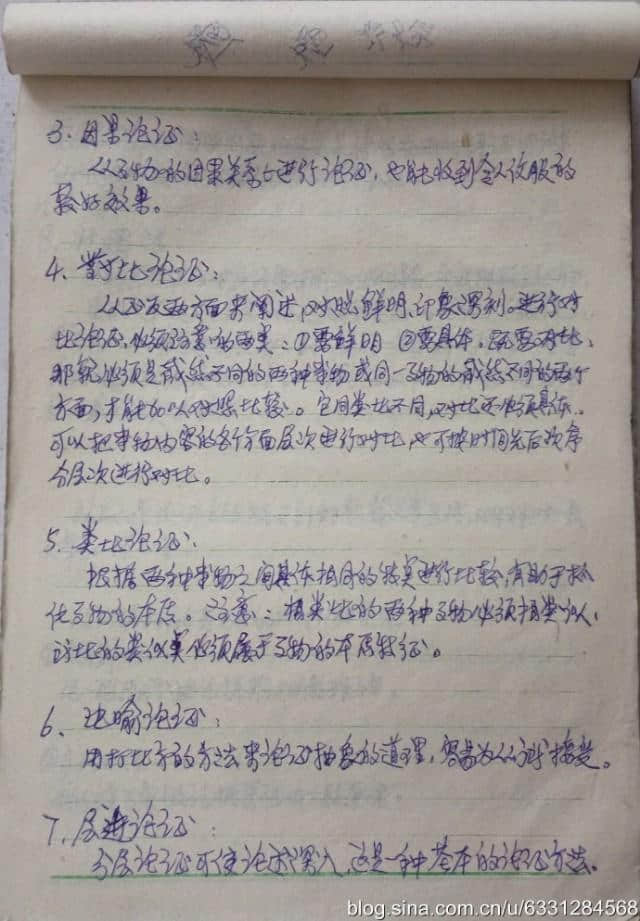 3、因果论证：
从事物的因果关系上进行论证，也能收到令人信服的
较好效果。
4、对比论证：
从正反两方面来阐述，对照鲜明、印象深刻。进行对
比论证，必须注意两类：①要鲜明 ②要具体。既要对比，
那就必须是截然不同的两种事物或同一事物的截然不同的两个
方面，才能加以对照比较。它同类比不同，对比还必须具体。
可以把事物内容的各个方面层次进行对比，也可按时间先后次序
分层次进行对比。
5、类比论证：
根据两种事物之间某些相同的特点进行比较，有助于
事物的本质。注意：相类比的两种事物必须相类似，
对比的类似点必须属于事物的本质特征。
6、比喻论证：
用打比方的方法来论证抽象的道理，容易为人们接受。
7、层进论证：
分层论证可使论述深入，这是一种基本的论证方法。
blog.sina.com.cn/u/6331284568